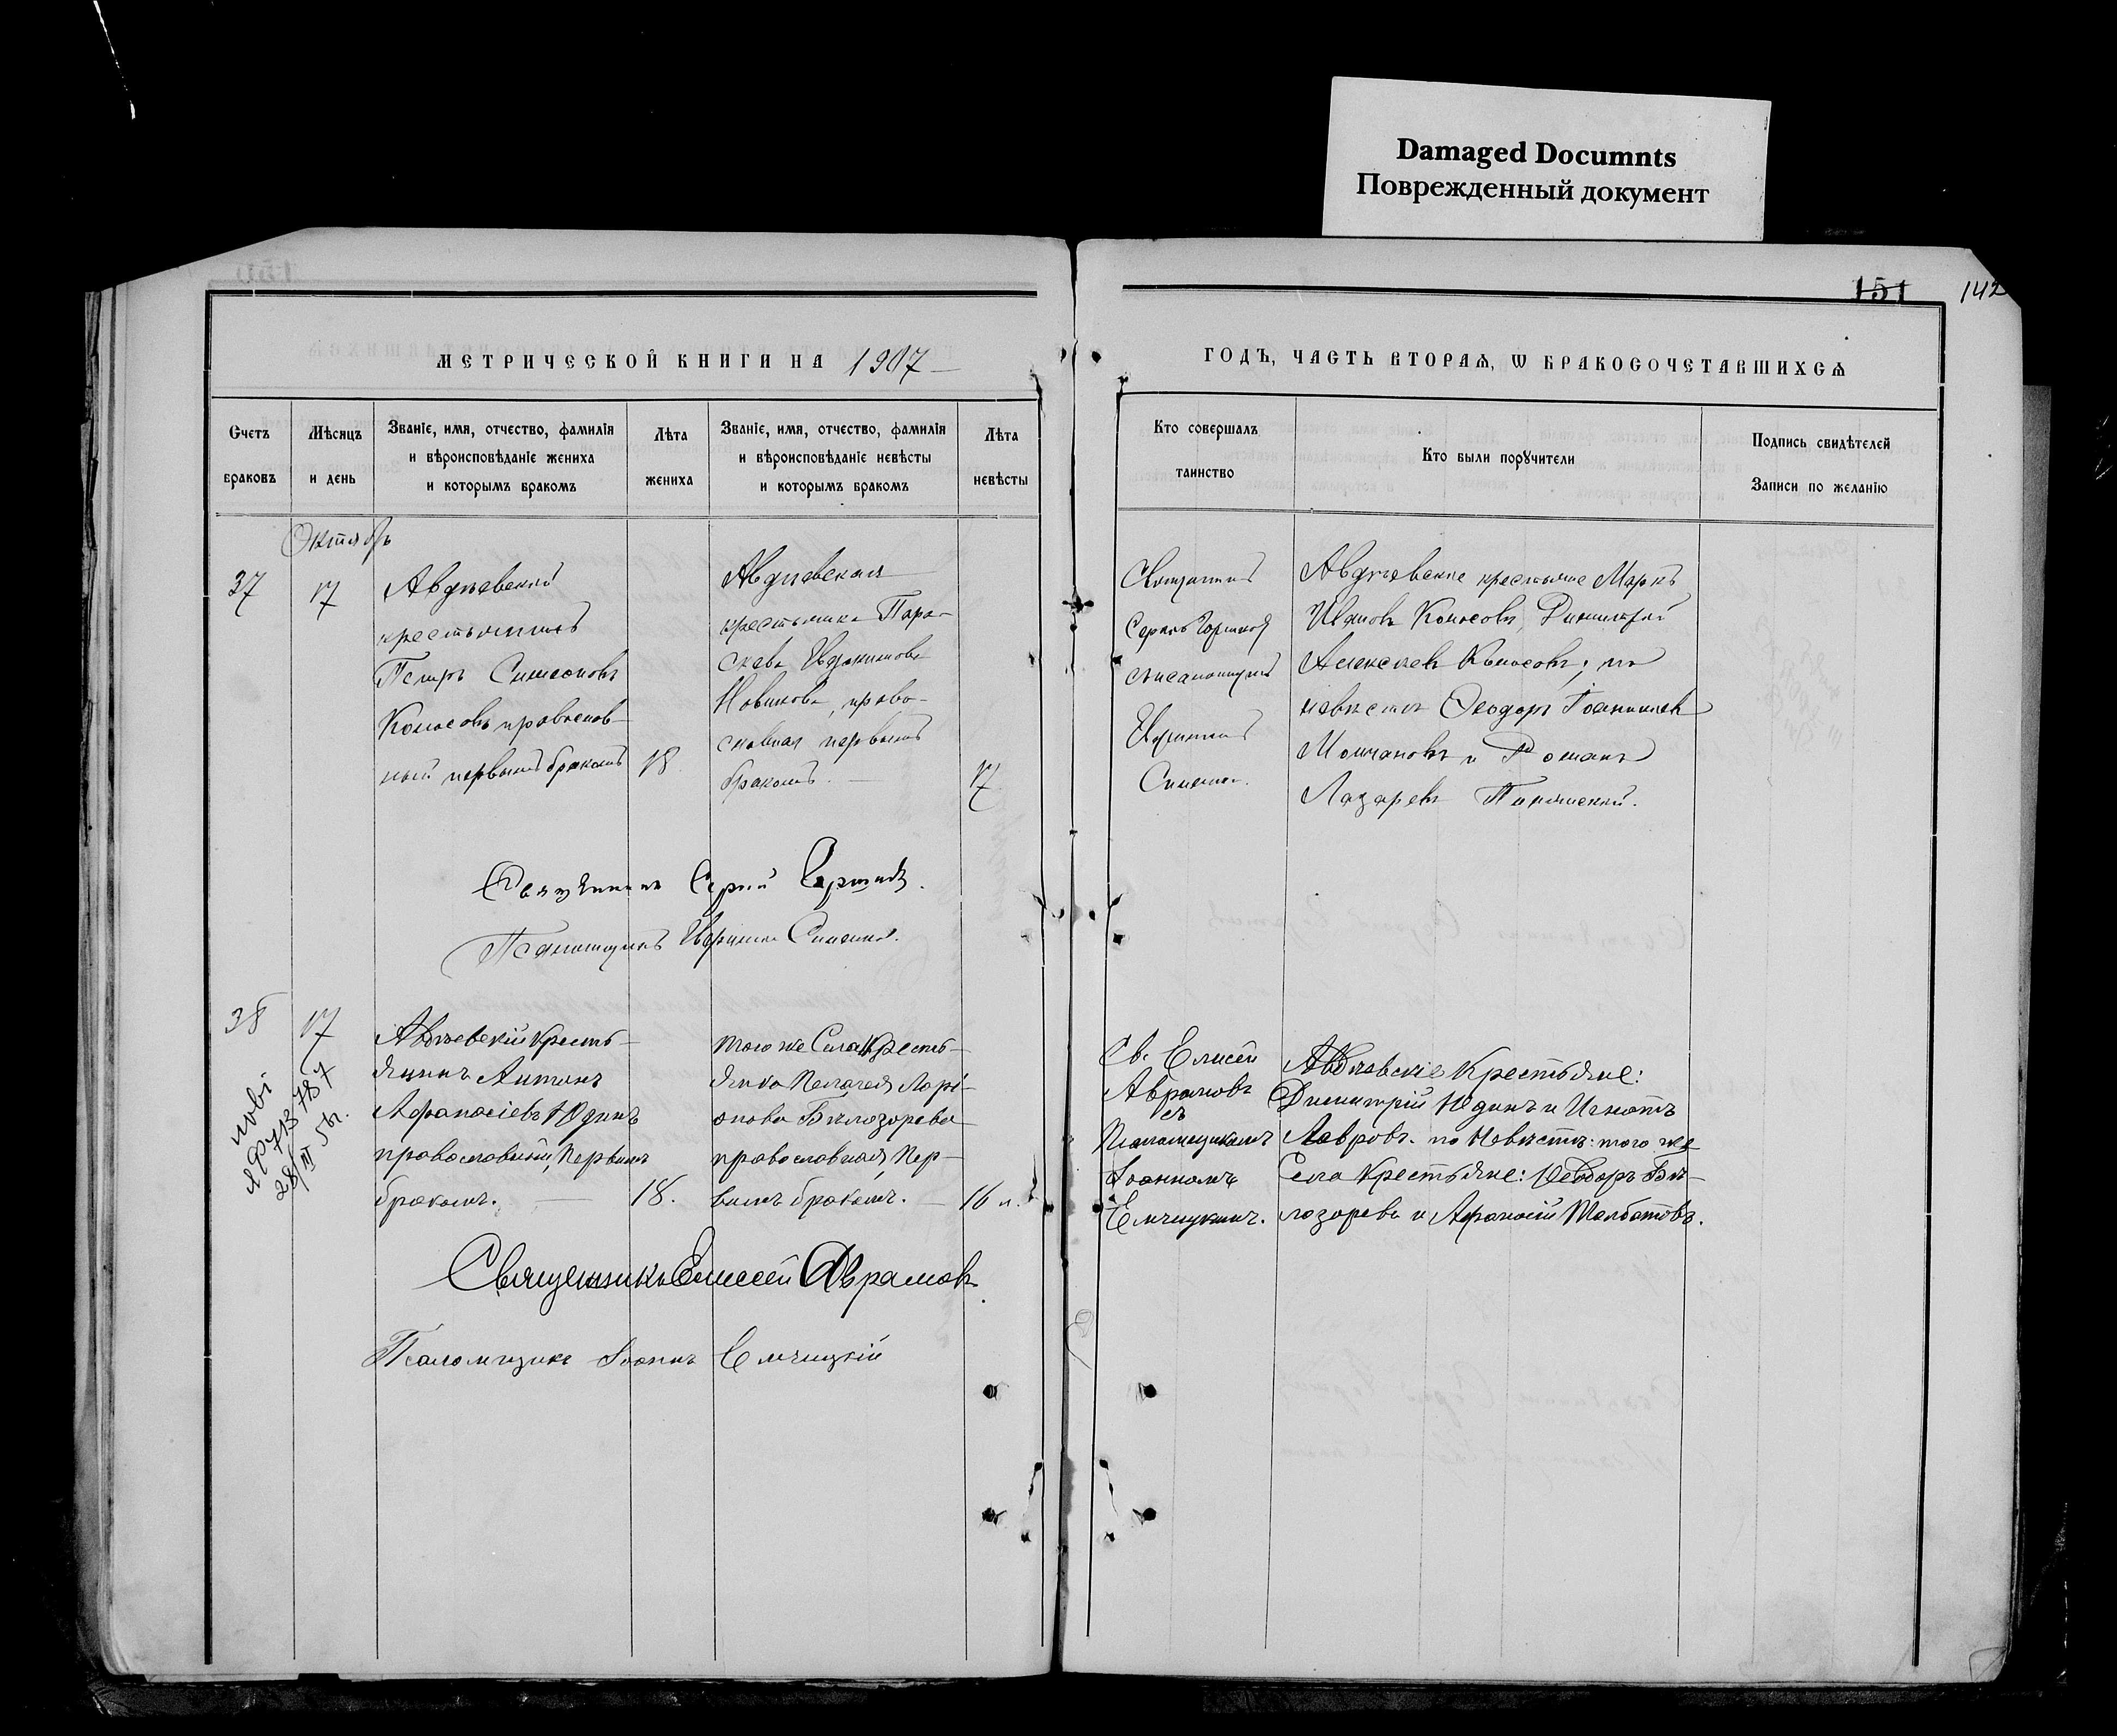 Damaged Documnts
Поврежденный документ
151 142
МЕТРИЧЕСКОЙ КНИГИ НА 1907
ГОДЪ, ЧАСТЬ ВТОРАѦ, Ѡ БРАКОСОЧЕТАВШИХСѦ
Счетъ
браковъ
Мѣсяцъ
и день
Званіе, имя, отчество, фамилія
и вѣроисповѣданіе жениха
и которымъ бракомъ
Лѣта
жениха
Званіе, имя, отчество, фамилія
и вѣроисповѣданіе невѣсты
и которымъ бракомъ
Лѣта
невѣсты
Кто совершалъ
таинство
Кто были порꙋчители
Подпись свидѣтелей
Записи по желанію
Октябрь
37
17
Авдѣевский
крестьянинъ
Петръ Симеоновъ
Колосовъ православ-
ный первымъ бракомъ
18
Авдѣевская
крестьянка Пара-
скева Евдокимова
Новикова, право-
славная первымъ
бракомъ.
17
Священникъ
псаломщикъ
Симении
Авдѣевские крестьяне Маркъ
Ивановъ Колосовъ, Димитрий
Алексѣевъ Колосовъ; по
невѣстѣ Ѳеодоръ Іоанникіевъ
Молчановъ и Романъ
Лазаревъ
Священникъ Сергий
Псаломщикъ
38
17
Авдѣевскій кресть-
янинъ Антонъ
Афанасіевъ Юдинъ
православный, первымъ
бракомъ.
18.
того же Села Кресть-
янка Пелагея Ларі-
онова Бѣлозорева
православная, пер-
вымъ бракомъ.
16 л.
Св. Елисей
Аврамовъ
съ
Псаломщикомъ
Іоанномъ
Елчицкимъ.
Авдѣевскіе Крестьяне:
Димитрій Юдинъ и Игнатъ
Лавровъ. по Невѣстѣ: того же
Села Крестьяне: Ѳеодоръ Бѣ-
лозоревъ и Афанасій Шалбатовъ.
28/III 56г.
Священникъ Елисей Аврамовъ.
Псаломщикъ Іоаннъ Елчицкій